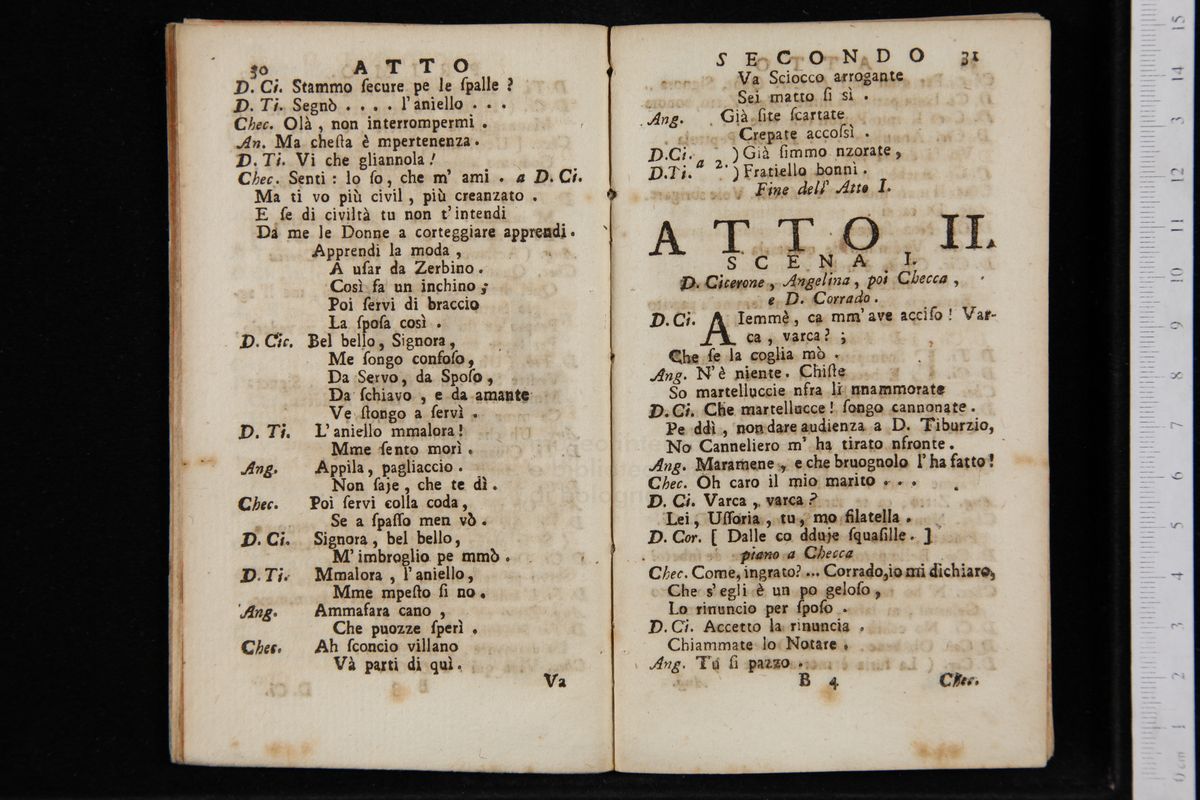 30 ATTO
D. Ci. Stammo ſecure pe le ſpalle ?
D. Ti. Segnò . . . . l'aniello . . .
Chec. Olà , non interrompermi .
An. Ma cheſta è mpertenenza .
D. Ti. Vi che gliannola !
Chec. Senti : lo ſo, che m' ami . a D. Ci.
Ma ti vo più civil , più creanzato .
E ſe di civiltà tu non t'intendi
Da me le Donne a corteggiare apprendi .
Apprendi la moda ,
A uſar da Zerbino .
Così fa un inchino ;
Poi ſervi di braccio
La ſpoſa così .
D. Cic. Bel bello, Signora,
Me ſongo confoſo,
Da Servo, da Spoſo ,
Da ſchiavo , e da amante
Ve ſtongo a ſervì .
D. Ti. L'aniello mmalora !
Mme ſento morì .
Ang. Appila, pagliaccio .
Non ſaje , che te dì .
Chec. Poi ſervi colla coda,
Se a ſpaſſo men vò .
D. Ci. Signora, bel bello,
M' imbroglio pe mmò .
D. Ti. Mmalora , l'aniello,
Mme mpeſto ſi no .
Ang. Ammafara cano ,
Che puozze ſperì .
Chec. Ah ſconcio villano
Và parti di quì .
Va
SECONDO 31
Va Sciocco arrogante
Sei matto ſi sì .
Ang. Già ſite ſcartate
Crepate accoſsì .
D.Ci. a 2. ) Già ſimmo nzorate,
D.Ti. ) Fratiello bonnì .
Fine dell' Atto I.
ATTO II.
SCENA I.
D. Cicerone , Angelina , poi Checca ,
e D. Corrado .
D. Ci. AIemmè , ca mm' ave acciſo ! Var-
ca , varca ? ;
Che ſe la coglia mò .
Ang. N' è niente . Chiſte
So martelluccie nfra li nnammorate
D. Ci. Che martellucce ! ſongo cannonate .
Pe ddì , non dare audienza a D. Tiburzio,
No Canneliero m' ha tirato nfronte .
Ang. Maramene , e che bruognolo l' ha fatto !
Chec. Oh caro il mio marito . . .
D. Ci. Varca , varca ?
Lei , Uſſoria , tu , mo filatella .
D. Cor. [ Dalle co dduje ſquaſille . ]
piano a Checca
Chec. Come, ingrato? ... Corrado, io mi dichiaro,
Che s' egli è un po geloſo ,
Lo rinuncio per ſpoſo .
D. Ci. Accetto la rinuncia .
Chiammate lo Notare .
Ang. Tu ſi pazzo .
B 4 Chec.